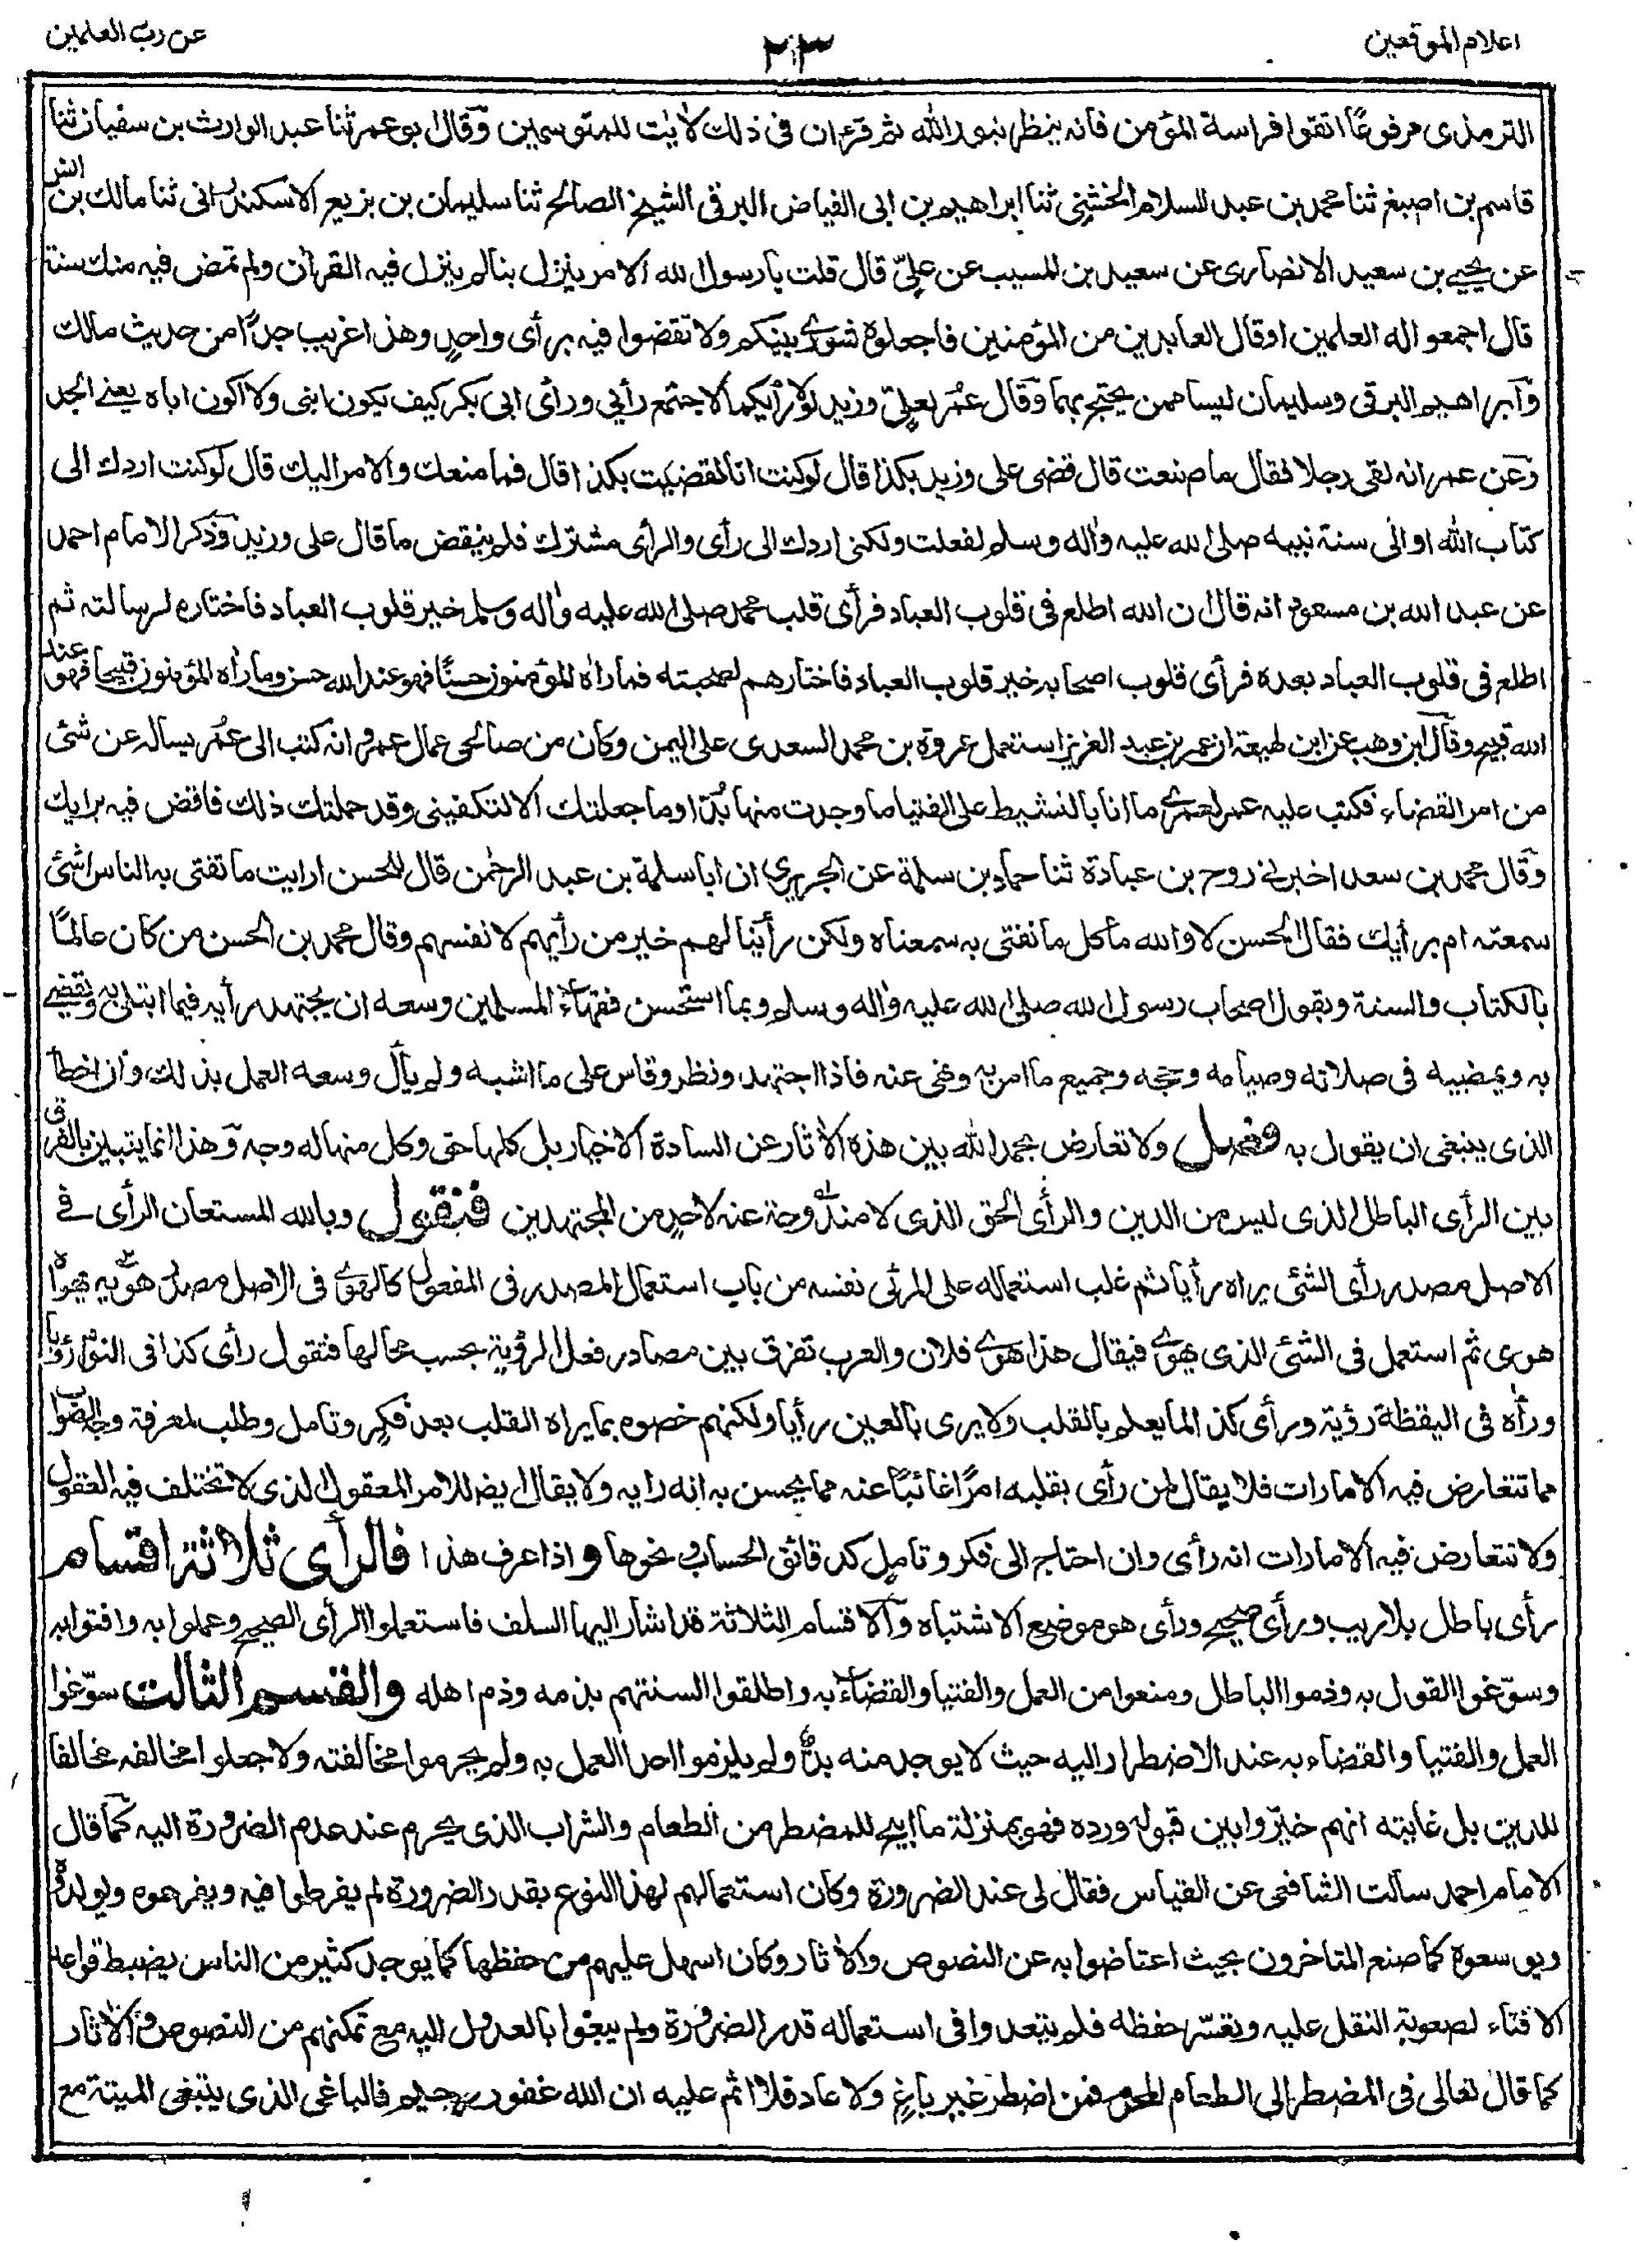 اعلام الموقعين
٢٣
عن رب العلمين
الترمذى مرفوعًا اتقوا فراسة المؤمن فانه ينظر بنور الله ثم قرء ان فى ذلك لاٰيٰت للمتوسمين وقال ابو عمر ثنا عبد الوارث بن سفيان ثنا
قاسم بن اصبغ ثنا محمد بن عبد السلام الخشنى ثنا ابراهيم بن ابى الفياض البرقى الشيخ الصالح ثنا سليمان بن بزيع الاسكندرانى ثنا مالك بن انس
عن يحيى بن سعيد الانصارى عن سعيد بن المسيب عن علىّ قال قلت يا رسول الله الامر ينزل بنا لم ينزل فيه القراٰن ولم تمض فيه منك سنة
قال اجمعوا له العلمين او قال العابدين من المؤمنين فاجعلوه شورى بينكم ولا تقضوا فيه برأى واحدٍ وهذا غريب جدًّا من حديث مالك
واٰبراهيم البرقى وسليمان ليسا ممن يحتج بهما وقال عمر لعلىّ وزيد لولا رأيكما لاجتمع رأيى ورأى ابى بكر كيف يكون ابنى ولا اكون اباه يعنى الجد
وعن عمر انه لقى رجلا فقال ما صنعت قال قضى على وزيد بكذا قال لو كنت انا لقضيت بكذا قال فما منعك والامر اليك قال لو كنت اردك الى
كتاب الله او الى سنة نبيه صلى الله عليه واٰله وسلم لفعلت ولكنى اردك الى رأى والرأى مشترك فلم ينقض ما قال على وزيد وذكر الامام احمد
عن عبد الله بن مسعود انه قال ان الله اطلع فى قلوب العباد فرأى قلب محمد صلى الله عليه واٰله وسلم خير قلوب العباد فاختاره لرسالته ثم
اطلع فى قلوب العباد بعده فرأى قلوب اصحابه خير قلوب العباد فاختارهم لصحبته فما راٰه المؤمنون حسنًا فهو عند الله حسن وما راٰه المؤمنون قبيحا فهو عند
الله قبيح وقال ابن وهب عن ابن لهيعة ان عمر بن عبد العزيز استعمل عروة بن محمد السعدى على اليمن وكان من صالحى عمال عمر وانه كتب الى عمر يساله عن شئ
من امر القضاء فكتب عليه عمر لعمرى ما انا بالنشيط على الفتيا ما وجدت منها بُدًّا وما جعلتك الا لتكفينى وقد حملتك ذلك فاقض فيه برايك
وقال محمد بن سعد اخبرنى روح بن عبادة ثنا حماد بن سلمة عن الجريرى ان ابا سلمة بن عبد الرحمٰن قال للحسن ارايت ما تفتى به الناس اشئ
سمعته ام برأيك فقال الحسن لا والله ما كل ما نفتى به سمعناه ولكن رأينا لهم خير من رأيهم لانفسهم وقال محمد بن الحسن من كان عالمًا
بالكتاب والسنة وبقول اصحاب رسول الله صلى الله عليه واٰله وسلم وبما استحسن فقهاء المسلمين وسعه ان يجتهد رأيه فيما ابتلى به ويقضى
به ويمضيه فى صلاته وصيامه وحجه وجميع ما امر به ونهى عنه فاذا اجتهد ونظر وقاس على ما اشبه ولم يأل وسعه العمل بذلك وان اخطأ
الذى ينبغى ان يقول به فصل ولا تعارض بحمد الله بين هذه الاٰثار عن السادة الاخيار بل كلها حق وكل منها له وجه وهذا انما يتبين بالفرق
بين الرأى الباطل الذى ليس من الدين والرأى الحق الذى لا مندوحة عنه لاحدٍ من المجتهدين فنقول وبالله المستعان الرأى فى
الاصل مصدر رأى الشئ يراه رأيا ثم غلب استعماله على المرئى نفسه من باب استعمال المصدر فى المفعول كالهوى فى الاصل مصدر هويه يهواه
هوى ثم استعمل فى الشئ الذى يهوى فيقال هذا هوى فلان والعرب تفرق بين مصادر فعل الرؤية بحسب محالها فتقول رأى كذا فى النوم رؤيا
وراٰه فى اليقظة رؤية ورأى كذا لما يعلم بالقلب ولا يرى بالعين رأيا ولكنهم خصوه بما يراه القلب بعد فكرٍ وتامل وطلب لمعرفة وجه الصواب
مما تتعارض فيه الامارات فلا يقال لمن رأى بقلبه امرًا غائبًا عنه مما يحسن به انه رايه ولا يقال ايضا للامر المعقول الذى لا تختلف فيه العقول
ولا تتعارض فيه الامارات انه رأى وان احتاج الى فكر وتاملٍ كدقائق الحساب ونحوها واذا عرف هذا فالرأى ثلاثة اقسام
رأى باطل بلا ريب ورأى صحيح ورأى هو موضع الاشتباه والاقسام الثلاثة قد اشار اليها السلف فاستعملوا الرأى الصحيح وعملوا به وافتوا به
وسوّغوا القول به وذموا الباطل ومنعوا من العمل والفتيا والقضاء به واطلقوا السنتهم بذمه وذم اهله والقسم الثالث سوّغوا
العمل والفتيا والقضاء به عند الاضطرار اليه حيث لا يوجد منه بدٌّ ولم يلزموا احدا العمل به ولم يحرموا مخالفته ولا جعلوا مخالفه مخالفا
للدين بل غايته انهم خيّروا بين قبوله ورده فهو بمنزلة ما ابيح للمضطر من الطعام والشراب الذى يحرم عند عدم الضرورة اليه كما قال
الامام احمد سالت الشافعى عن القياس فقال لى عند الضرورة وكان استعمالهم لهذا النوع بقدر الضرورة لم يفرطوا فيه ويفرعوه ويولدوه
ويوسعوه كما صنع المتاخرون بحيث اعتاضوا به عن النصوص والاٰثار وكان اسهل عليهم من حفظها كما يوجد كثير من الناس يضبط قواعد
الافتاء لصعوبة النقل عليه وتعسّر حفظه فلم يتعدوا فى استعماله قدر الضرورة ولم يبغوا بالعدول اليه مع تمكنهم من النصوص والاٰثار
كما قال تعالى فى المضطر الى الطعام المحرم فمن اضطر غير باغٍ ولا عاد فلا اثم عليه ان الله غفور رحيم فالباغى الذى يبتغى الميتة مع